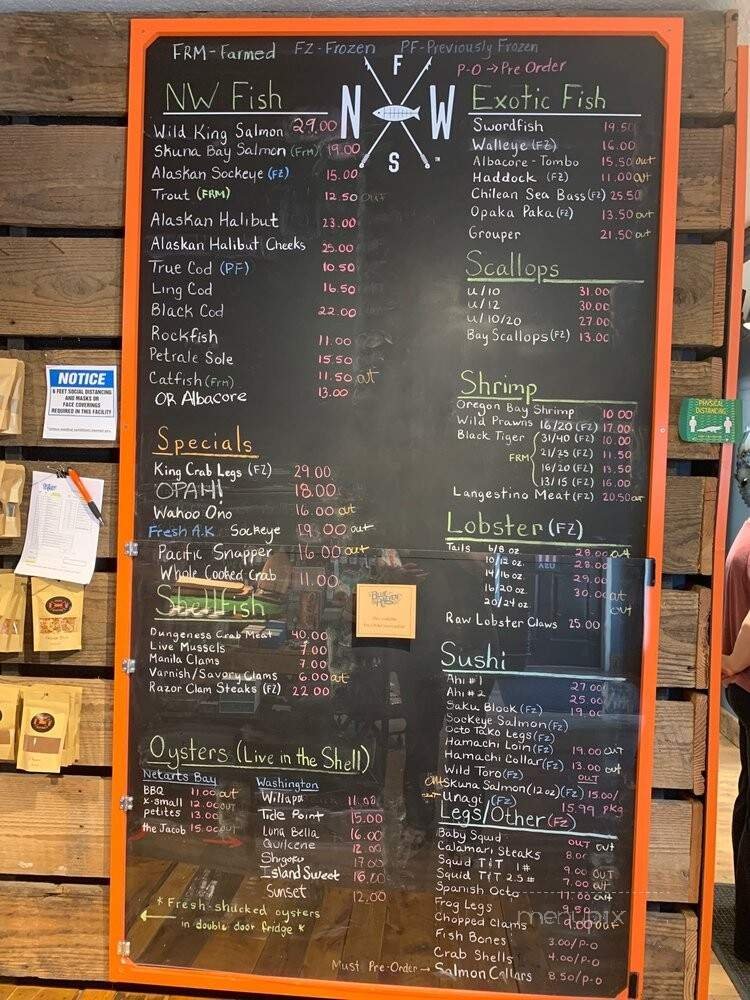 FRM-Farmed FZ-Frozen PF-Previously Frozen
P-O → Pre Order
N F W S
NW Fish
Wild King Salmon 29.00
Skuna Bay Salmon (Frm) 19.00
Alaskan Sockeye (FZ) 15.00
Trout (FRM) 12.50 out
Alaskan Halibut 23.00
Alaskan Halibut Cheeks 25.00
True Cod (PF) 10.50
Ling Cod 16.50
Black Cod 22.00
Rockfish 11.00
Petrale Sole 15.50
Catfish (Frm) 11.50 out
OR Albacore 13.00
Specials
King Crab Legs (FZ) 29.00
OPAH! 18.00
Wahoo Ono 16.00 out
Fresh A.K Sockeye 19.00 out
Pacific Snapper 16.00 out
Whole Cooked Crab 11.00
Shellfish
Dungeness Crab Meat 40.00
Live Mussels 7.00
Manila Clams 7.00
Varnish/Savory Clams 6.00 out
Razor Clam Steaks (FZ) 22.00
Oysters (Live in the Shell)
Netarts Bay
BBQ 11.00 out
x-small 12.00 out
petites 13.00
the Jacob 15.00 out
Washington
Willapa 11.00
Tide Point 15.00
Luna Bella 16.00
Quilcene 12.00
Shigoku 17.00
Island Sweet 16.00
Sunset 12.00
* Fresh-shucked oysters
in double door fridge *
Exotic Fish
Swordfish 19.50
Walleye (FZ) 16.00
Albacore-Tombo 15.50 out
Haddock (FZ) 11.00 out
Chilean Sea Bass (FZ) 25.50
Opaka Paka (FZ) 13.50 out
Grouper 21.50 out
Scallops
U/10 31.00
U/12 30.00
U/10/20 27.00
Bay Scallops (FZ) 13.00
Shrimp
Oregon Bay Shrimp 10.00
Wild Prawns 16/20 (FZ) 17.00
Black Tiger 31/40 (FZ) 10.00
FRM 21/25 (FZ) 11.50
16/20 (FZ) 13.50
13/15 (FZ) 16.00
Langestino Meat (FZ) 20.50 out
Lobster (FZ)
Tails 6/8 oz. 28.00 out
10/12 oz. 28.00
14/16 oz 29.00
16/20 oz 30.00 out
20/24 oz out
Raw Lobster Claws 25.00
Sushi
Ahi #1 27.00
Ahi #2 25.00
Saku Block (FZ) 19.00
Sockeye Salmon (FZ)
Octo Tako Legs (FZ)
Hamachi Loin (FZ) 19.00 out
Hamachi Collar (FZ) 13.00 out
Wild Toro (FZ) OUT
out Skuna Salmon (12oz) (FZ) 15.00/
out Unagi (FZ) 15.99 pkg
Legs/Other (FZ)
Baby Squid OUT out
Calamari Steaks 8.00
Squid T&T 1# 9.00 OUT
Squid T&T 2.5# 7.00 out
Spanish Octo 11.00 out
Frog Legs 9.50
Chopped Clams 9.00 out
Fish Bones 3.00/P-O
Crab Shells 4.00/P-O
Must Pre-Order → Salmon Collars 8.50/P-O
NOTICE
6 FEET SOCIAL DISTANCING
AND MASKS OR
FACE COVERINGS
REQUIRED IN THIS FACILITY
PHYSICAL
DISTANCING
menupix